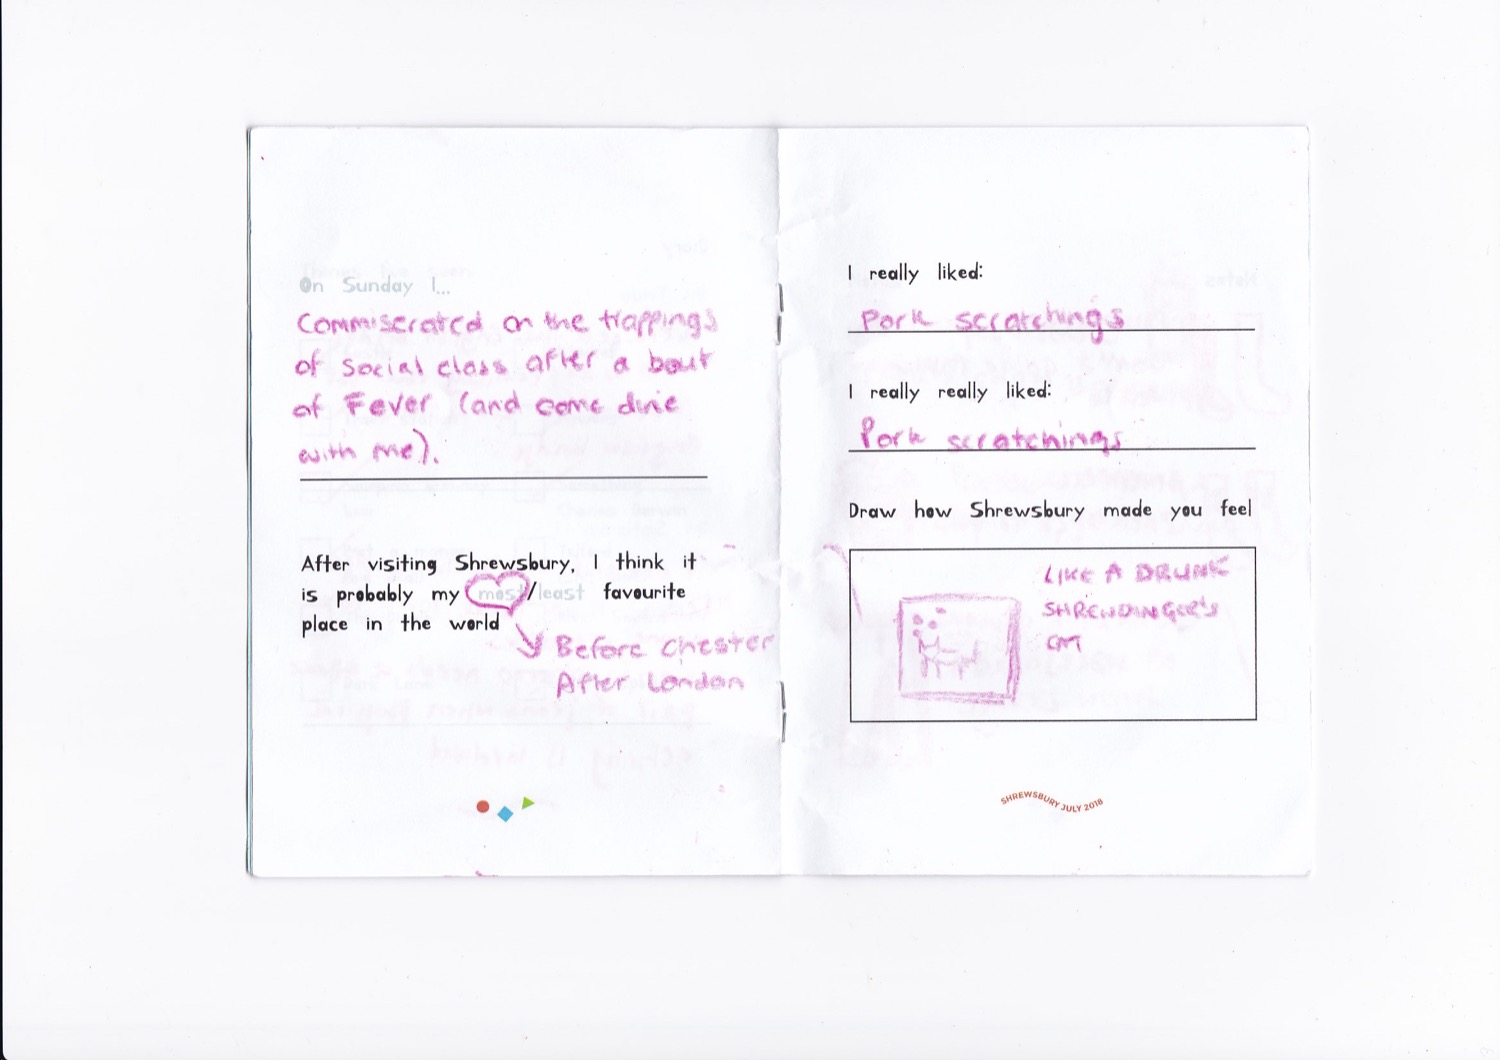 On Sunday I...
Commiserated on the trappings
of social class after a bout
of Fever (and come dine
with me).
After visiting Shrewsbury, I think it
is probably my most/least favourite
place in the world
Before Chester
After London
I really liked:
Pork scratchings
I really really liked:
Pork scratchings
Draw how Shrewsbury made you feel
LIKE A DRUNK
SHREWDINGER'S
CAT
SHREWSBURY JULY 2018